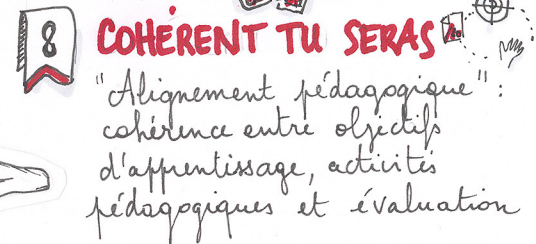 8
COHÉRENT TU SERAS
"Alignement pédagogique" :
cohérence entre objectifs
d'apprentissage, activités
pédagogiques et évaluation